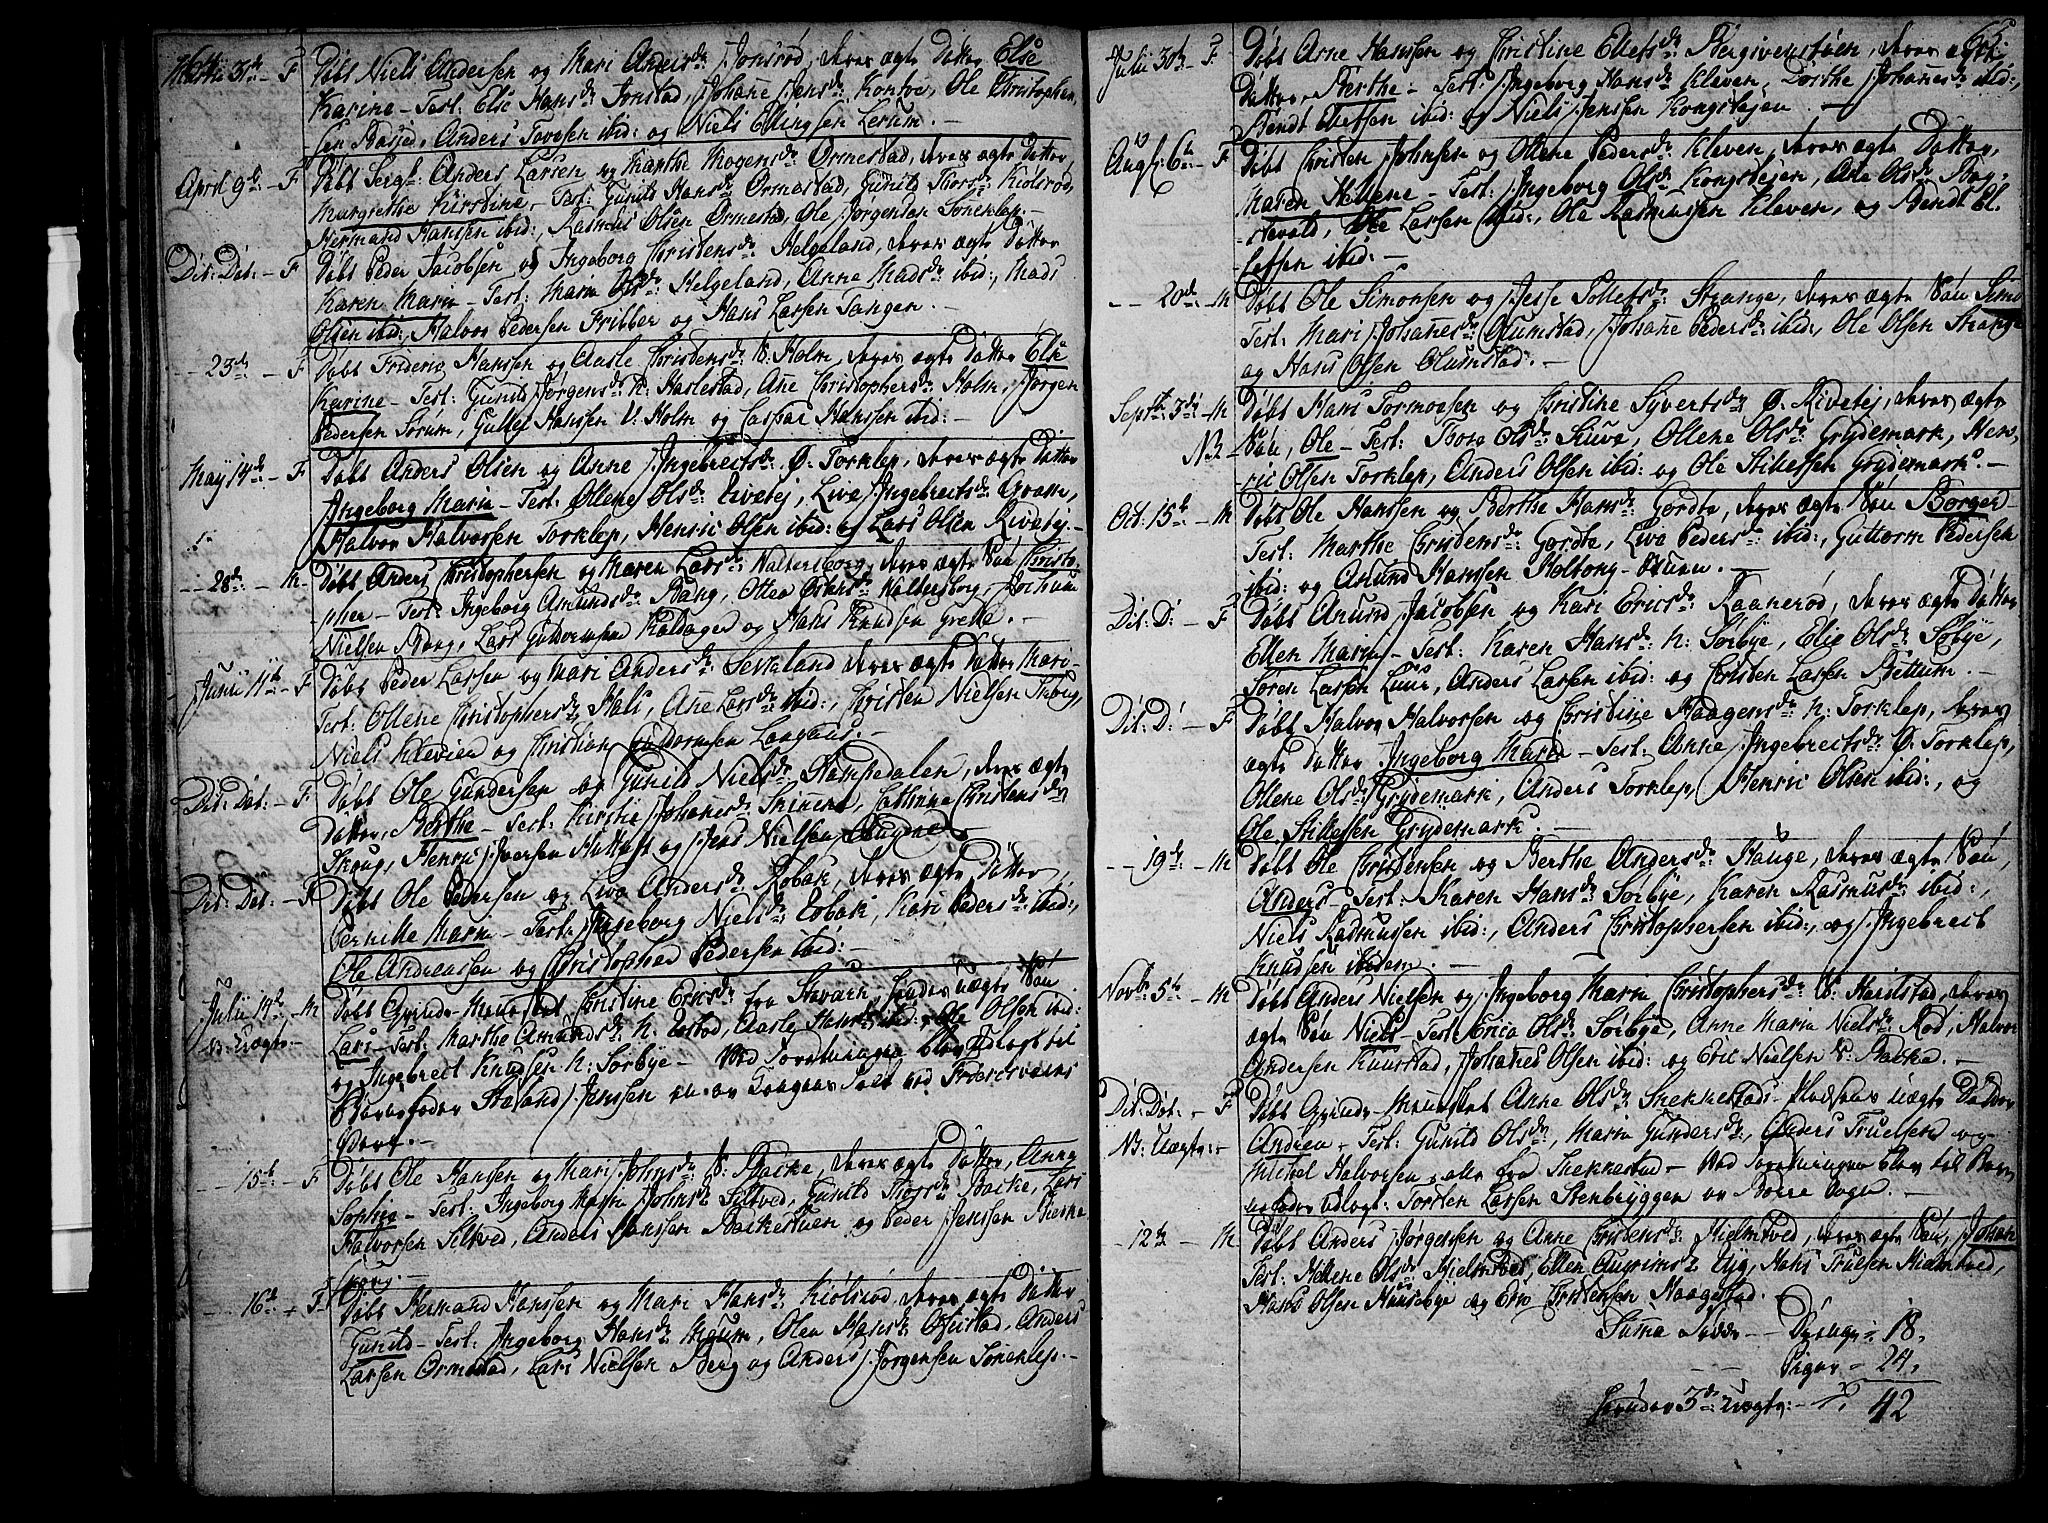 Døbt Niels Andersen og Mari Anders d: Jonsrød, deres ægte Datter Else
Karine - Test: Else Hans d: Jonstad, Johane Jens d: Ole Christopher
sen Anders Tovesen ibid: og Niels Ellingsen Lerum. -
April 9de - F Døbt Serg: Anders Larsen og Marthe Mogens d: Ormestad, deres ægte Datter
Margrethe Kirstine - Test: Gunild Hans d: Ormestad, Gunild Thors d: Kiølsrød,
Hermand Hanssen ibid: Rasmus Olsen Ormestad, Ole Jørgensen Søneklep. -
Dit: Dit: - F Døbt Peder Jacobsen og Ingeborg Christens d: Helgeland, deres ægte Datter
Karen Maria - Test: Maria Ols d: Helgeland, Anne Mads d: ibid:, Mads
Olsen ibid:, Halvor Pedersen Fribber og Hans Larsen Tangen. -
- - 23de - F Døbt Frideric Hansen og Aasle Christens d: V. Holm, deres ægte Datter Else
Karine - Test: Gunild Jørgens d: N. Haslestad, Ane Christophers d: Holm, Jørgen
Pedersen Sørum, Gullej Hanssen V: Holm og Caspar Hanssen ibid: -
May 14de - F Døbt Anders Olsen og Anne Ingebrects d: Ø. Torklep, deres ægte Datter
Ingeborg Maria - Test: Ollene Ols d: Rivetej, Liva Ingebreits d: Gram,
Halvor Halvorsen Torklep, Henric Olsen ibid: og Lars Olsen Rivetej. -
- - 28de - M - Døbt Anders Christophersen og Maren Lars d: Valtersborg, deres ægte Søn Christo-
pher - Test: Ingeborg Amunds d: Bang, Jochum
Nielsen Bang, Lars Guldormsen og Hans Knudsen Grette. -
Junii 11te - F Døbt Peder Larsen og Mari Anders d: deres ægte Datter Mari -
Test: Ollene Christophers d: Hals, Ane Lars d: ibid:, Christen Nielsen
Niels og Christian Guldormsen -
Dit: Dit: - F Døbt Ole Gundersen og Gunild Niels d: deres ægte
Datter, Berthe - Test: Kirstie Johanes d: Cathrine Christens d:
Skoug, Henric Iversen og Jens Nielsen
Dit: Dit: - F Døbt Ole Pedersen og Liva Anders d: Robak, deres ægte Datter,
Pernille Maria - Test: Ingeborg Niels d: Robak, Kari Peders d: ibid:,
Ole Andreassen og Christopher Pedersen ibid: -
Julii 14de - M Døbt Qvinde-Mennesket Christine Erics d: fra Staværn hendes uægte Søn
N: Uægte - Lars - Test: Marthe Amunds d: N. Aasle Hans d: ibid:, Ole Olsen ibid:
og Ingebrect Knudsen N: Sørbye - Ved Forretningen blev udlagt til
Barnefader Jenssen ved Friderichsværns
Værf. -
- - 15te - F Døbt Ole Hansen og Mari Johns d: V. Backe, deres ægte Datter, Anna
Sophia - Test: Ingeborg Johns d: Siltved, Gunild Thors d: Backe, Lars
Halvorsen Siltved, Anders Hanssen Backestuen og Peder Jenssen
- - 16de - F Døbt Hermand Hanssen og Mari Hans d: Kiølsrød, deres ægte Datter
Gunild - Test: Ingeborg Hans d: Olea Hans d: Anders
Larsen Ormestad, Lars Nielsen Berg og Anders Jørgensen Søneklep. -
65.
Julii 30te - F Døbt Arne Hanssen og Christine Ellefs d: Bergivenstuen, deres ægte
Datter, Berthe - Test: Ingeborg Hans d: Kleven, Dorthe Johanes d: ibid:,
Bendt Ellefsen ibid: og Niels Jenssen Kongstejen. -
Aug: 6te - F Døbt Christen Johnsen og Ollene Peders d: Kleven, deres ægte Datter,
Maren Hellene - Test: Ingeborg Ols d: Kongstejen, Ane Ols d: Bog-
stevold, Ole Larsen ibid:, Ole Rasmussen Kleven, og Bendt El-
lefsen ibid: -
- - 20de - M Døbt Ole Simonsen og Jesse Tollefs d: Strange, deres ægte Søn Simo
Test: Mari Johanes d: Olumstad, Johane Peders d: ibid:, Ole Olsen Strange
og Hans Olsen Olumstad. -
Septbr 3de - M Døbt Hans Tormoesen og Christine Syverts d: Ø. Rivetej, deres ægte
Søn, Ole - Test: Thora Ols d: Ollene Ols d: Grydemark, Hen-
ric Olsen Torklep, Anders Olsen ibid: og Ole Stikessen Grydemark. -
Oct: 15te - M Døbt Ole Hanssen og Berthe Hans d: Gordte, deres ægte Søn Borger -
Test: Marthe Christens d: Gordte, Liva Peders d: ibid:, Guttorm Pedersen
ibid: og Asund Hanssen
Dit: D: - F Døbt Anund Jacobsen og Kari Erics d: Raanerød, deres ægte Datter
Ellen Maria - Test: Karen Hans d: N: Sørbye, Elie Ols d: Søbye,
Søren Larsen Anders Larsen ibid: og Christen Larsen Bettum. -
Dit: D: - F Døbt Halvor Halvorsen og Christine Haagens d: N: Torklep, deres
ægte Datter Ingeborg Maria - Test: Anne Ingebreits d: Ø. Torklep,
Ollene Ols d: Grydemark, Anders Torklep, Henric Olsen ibid:, og
Ole Stikessen Grydemark. -
- - 19de - M Døbt Ole Christensen og Berthe Anders d: Hauge, deres ægte Søn,
Anders - Test: Karen Hans d: Sørbye, Karen Rasmus d: ibid:,
Niels Rasmussen ibid:, Anders Christophersen ibid:, og Ingebrect
Knudsen ibidem. -
Novbr 5te - M Døbt Anders Nielsen og Ingeborg Maria Christophers d: V. Harilstad, deres
ægte Søn Niels - Test: Erica Ols d: Sørbye, Anne Maria Niels d: Rød, Halvor
Andersen Johanes Olsen ibid: og Eric Nielsen V. Backe. -
Dit: Dit: - F Døbt Qvinde-Mennesket Anne Ols d: Skekkestad hendes uægte Datter
N: Uægte: - Andrea - Test: Gunild Ols d:, Maria Gunders d:, Anders Truelsen og
Mickel Halvorsen, alle fra Skekkestad - Ved Forretningen blev til Barn
nefader udlagt: Torsten Larsen Stenbryggen av Borre Sogn. -
- 12te - M Døbt Anders Jørgensen og Anne Christens d: Hielmtved, deres ægte Søn, Johan
Test: Hellene Ols d: Hielmtved, Ellen Hans Truelsen Hielmtved,
Hans Olsen Huusebye og Eric Christensen Haagestad.
Suma Døbte - - Drenge = 18,
- - Piger - 24,
herunder 3de Uægte: - 42